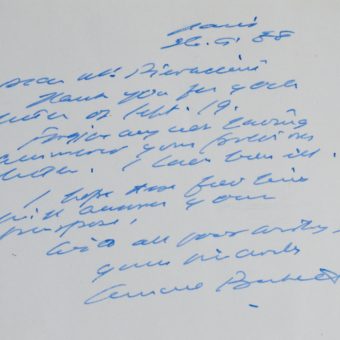 Paris
26.9.88
Dear Mr. Pieracini
Thank you for your
letter of Sept. 19.
Forgive my not having
answered your previous
letter. I have been ill.
I hope these few lines
will answer your
purpose.
With all good wishes
yours sincerely
Samuel Beckett